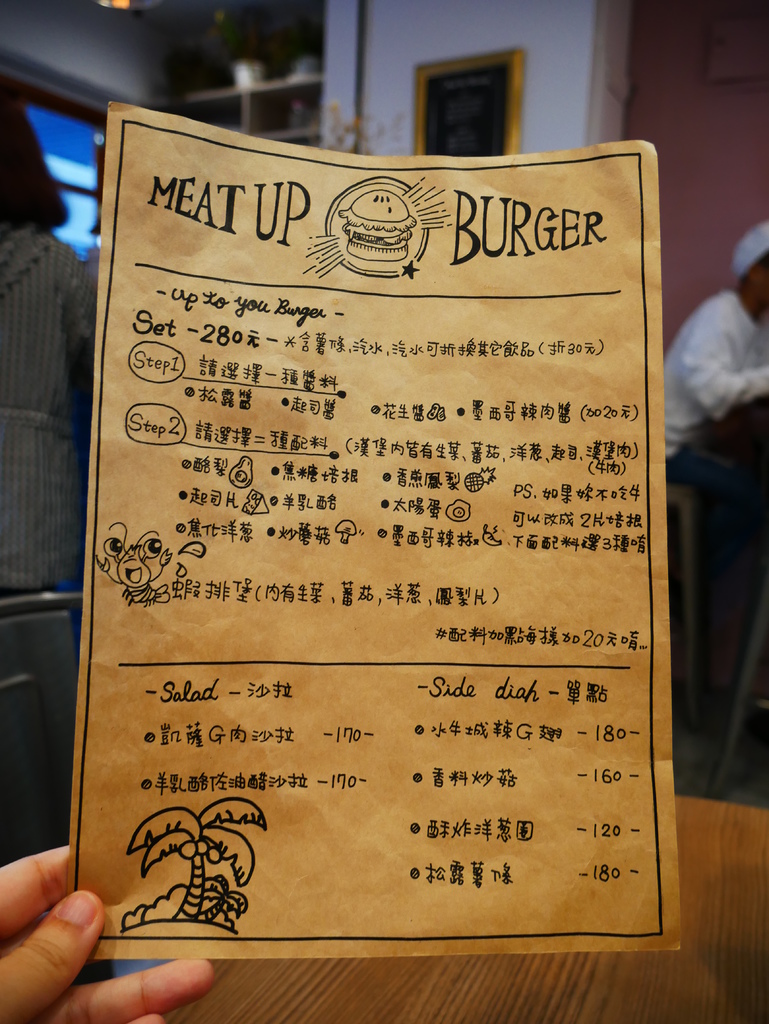 MEAT UP BURGER
-Up to you Burger-
Set -280元- *含薯條,汽水,汽水可折換其它飲品(折30元)
Step1 請選擇一種醬料
松露醬 起司醬 花生醬 墨西哥辣肉醬 (加20元)
Step2 請選擇二種配料 (漢堡內皆有生菜、蕃茄,洋蔥,起司,漢堡肉)
(牛肉)
酪梨 焦糖培根 香煎鳳梨
PS.如果妳不吃牛
起司片 羊乳酪 太陽蛋
可以改成2片培根
焦化洋蔥 炒蘑菇 墨西哥辣椒
下面配料選3種唷
蝦排堡(內有生菜、蕃茄,洋蔥、鳳梨片)
#配料加點每樣加20元唷...
-Salad-沙拉
凱薩G肉沙拉 -170-
羊乳酪佐油醋沙拉 -170-
-Side dish-單點
水牛城辣G翅 -180-
香料炒菇 -160-
酥炸洋蔥圈 -120-
松露薯條 -180-